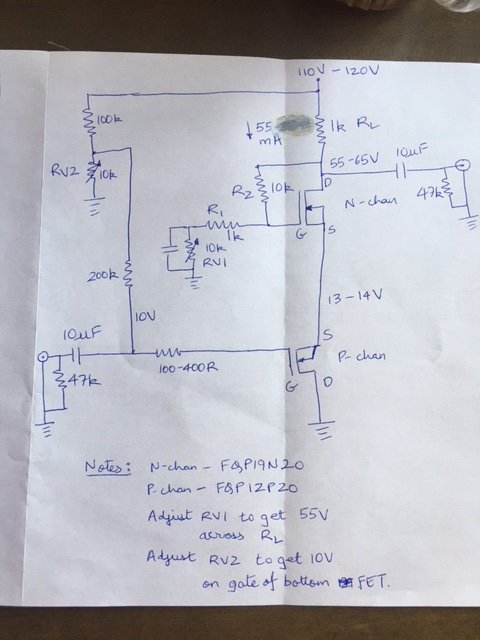 110V - 120V
100k
↓ 55 mA
1k RL
55-65V
10µF
RV2
10k
R2
10k
D
47k
N-chan
R1
1k
G
S
10k
RV1
200k
13-14V
10V
S
10µF
P-chan
100-400R
G
D
47k
Notes: N-chan - FQP19N20
P-chan - FQP12P20
Adjust RV1 to get 55V
across RL
Adjust RV2 to get 10V
on gate of bottom FET.